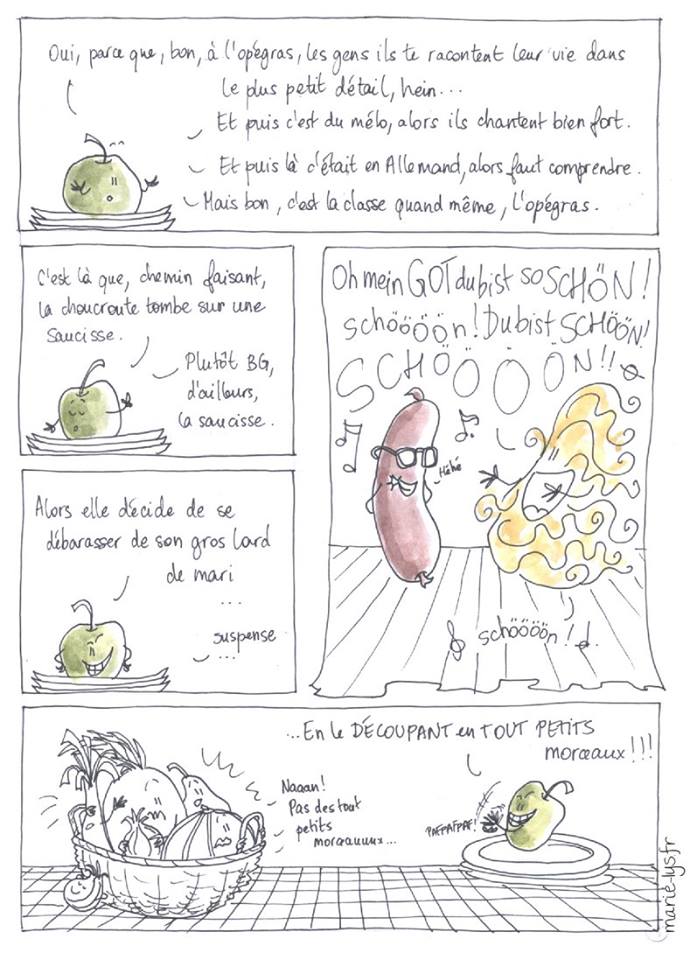 Oui, parce que, bon, à l'opégras, les gens ils te racontent leur vie dans
le plus petit détail, hein...
Et puis c'est du mélo, alors ils chantent bien fort.
Et puis là c'était en Allemand, alors faut comprendre.
Mais bon, c'est la classe quand même, l'opégras.
C'est là que, chemin faisant,
la choucroute tombe sur une
saucisse.
Plutôt BG,
d'ailleurs,
la saucisse.
Oh mein GOT du bist so SCHÖN!
schöööön! Du bist SCHÖÖN!
SCHÖÖÖÖN!!
Héhé
schöööön!
Alors elle décide de se
débarasser de son gros lard
de mari
...
suspense
...
...En le DÉCOUPANT en TOUT PETITS
morceaux!!!
Naaan!
Pas des tout
petits
morceauuux...
PAFPAFPAF!
marie-lys.fr